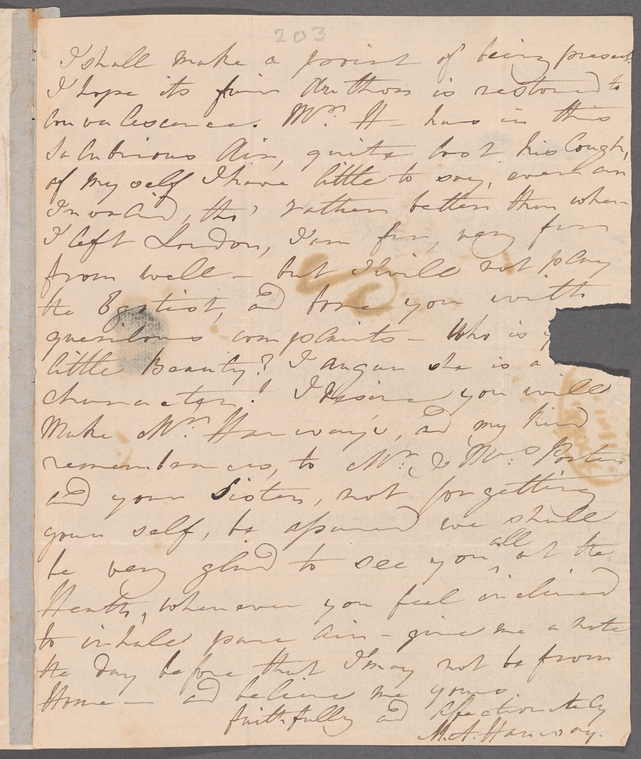 203
I shall make a point of being present
I hope its fair Authors is restored to
Convalescence. Mr. H— has in this
Salubrious Air, quite lost his Cough,
of myself I have little to say, ever an
Invalid, tho' rather better than when
I left London, I am far, very far
from well — but I will not play
the Egotist, and bore you with
querilous complaints — Who is
little Beauty? I augur she is a
character! I desire you will
Make Mr. Hanway's, and my kind
remembrances, to Mr. & Mrs Porter
and your Sister, not forgetting
your self, be assured we shall
be very glad to see you all at the
Heath, whenever you feel inclined
to inhale pure Air — give me a note
the day before that I may not be from
Home — and believe me yours
faithfully and affectionately
M. A. Hanway.